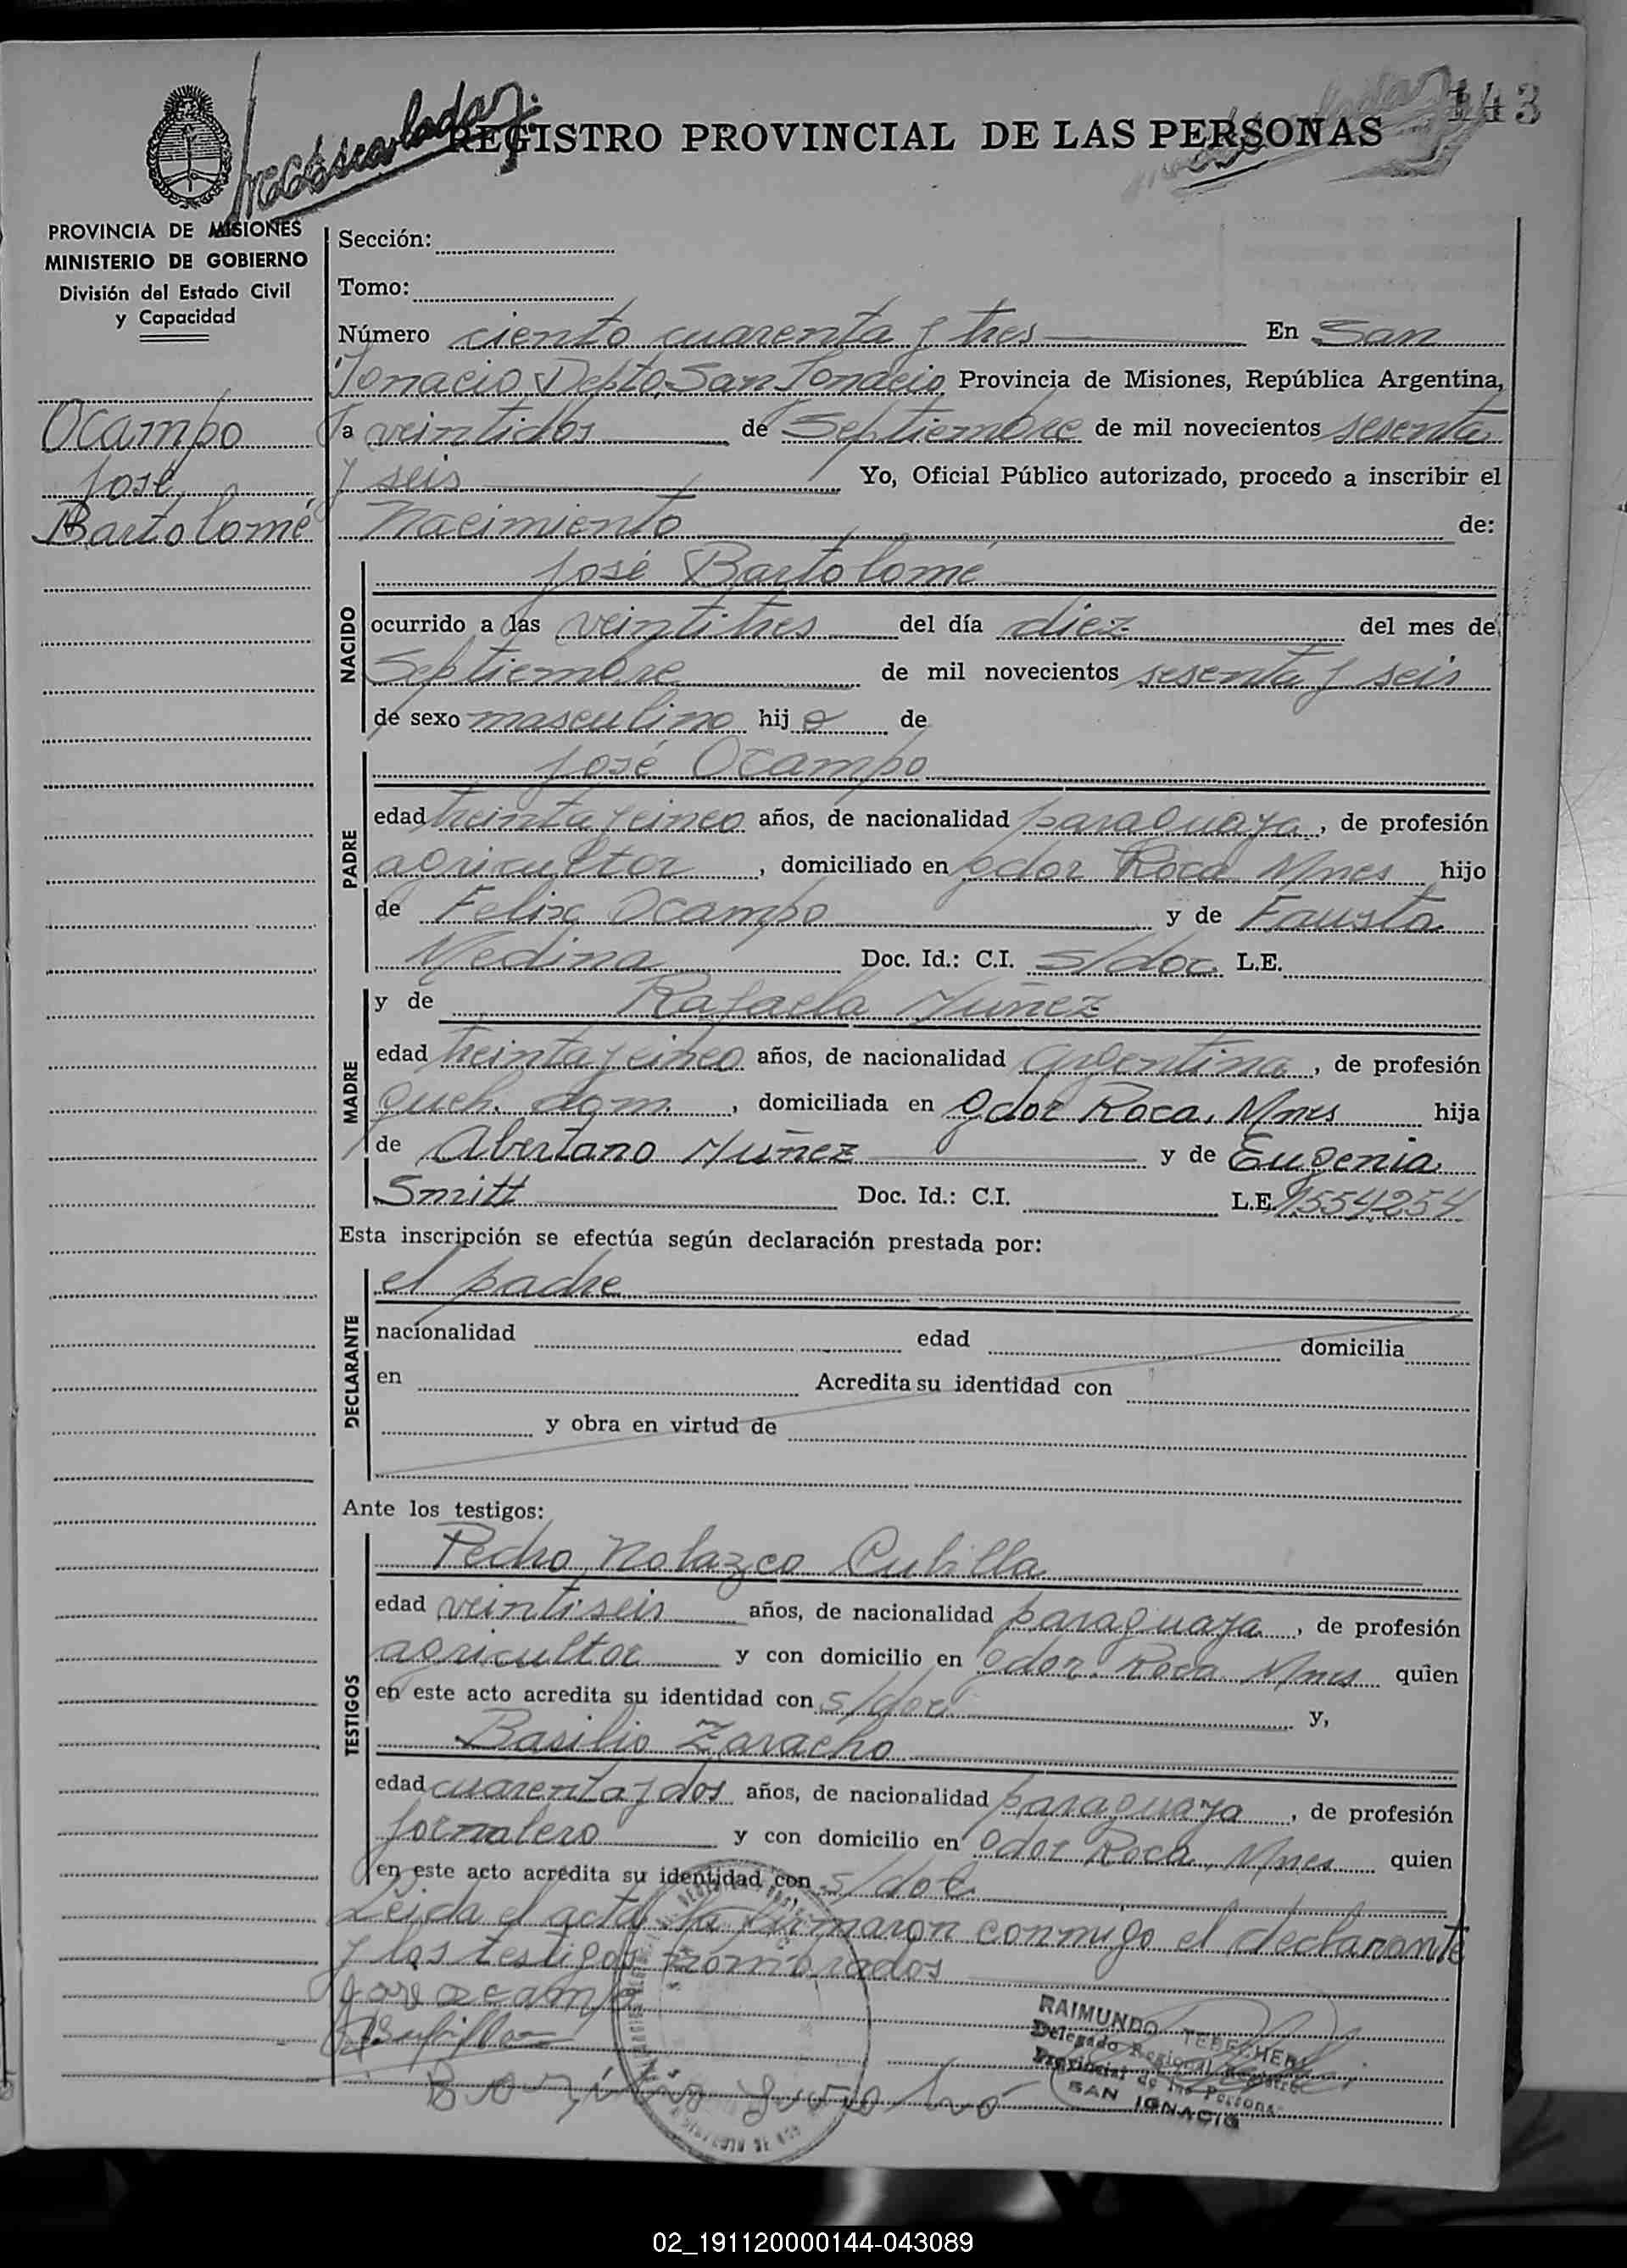 143
REGISTRO PROVINCIAL DE LAS PERSONAS
PROVINCIA DE MISIONES
MINISTERIO DE GOBIERNO
División del Estado Civil
y Capacidad
Ocampo
José
Bartolomé
Sección:
Tomo:
Número ciento cuarenta y tres En San
Ignacio Depto San Ignacio Provincia de Misiones, República Argentina,
a veintidos de Septiembre de mil novecientos sesenta
y seis Yo, Oficial Público autorizado, procedo a inscribir el
Nacimiento de:
NACIDO
José Bartolomé
ocurrido a las veintitres del día diez del mes de
Septiembre de mil novecientos sesenta y seis
de sexo masculino hijo de
PADRE
José Ocampo
edad treinta y cinco años, de nacionalidad paraguaya, de profesión
agricultor, domiciliado en Gdor Roca Mnes hijo
de Felix Ocampo y de Fausta
Medina Doc. Id.: C.I. s/doc. L.E.
MADRE
y de Rafaela Nuñez
edad treinta y cinco años, de nacionalidad argentina, de profesión
queh. dom., domiciliada en Gdor Roca, Mnes hija
de Albertano Nuñez y de Eugenia
Smitt Doc. Id.: C.I. L.E. 1554254
Esta inscripción se efectúa según declaración prestada por:
DECLARANTE
el padre
nacionalidad edad domicilia
en Acredita su identidad con
y obra en virtud de
Ante los testigos:
TESTIGOS
Pedro Nolazco Cubilla
edad veintiseis años, de nacionalidad paraguaya, de profesión
agricultor y con domicilio en Gdor. Roca Mnes quien
en este acto acredita su identidad con s/doc. y,
Basilio Zaracho
edad cuarenta y dos años, de nacionalidad paraguaya, de profesión
jornalero y con domicilio en Gdor Roca, Mnes quien
en este acto acredita su identidad con s/doc.
Leida el acta la firmaron conmigo el declarante
y los testigos nombrados
jose ocampo
RAIMUNDO
Delegado Regional Registro
Provincial de las Personas
SAN IGNACIO
02_191120000144-043089